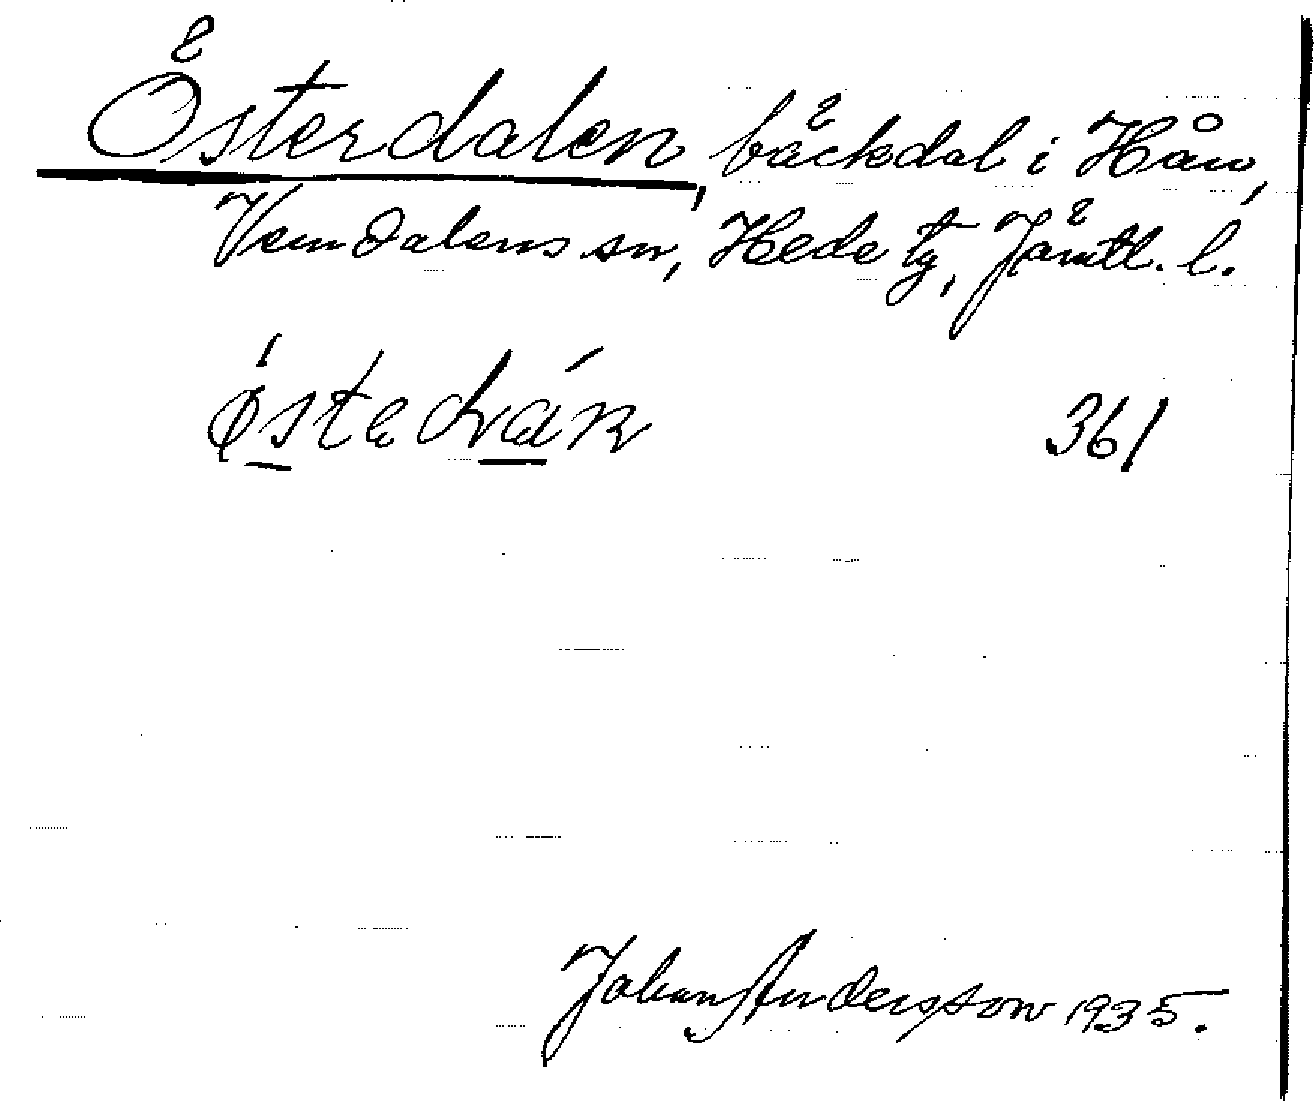 Österdalen, bäckdal i Hån,
Vemdalens sn, Hede tg, Jämtl. l.
361
Johan Andersson 1935.